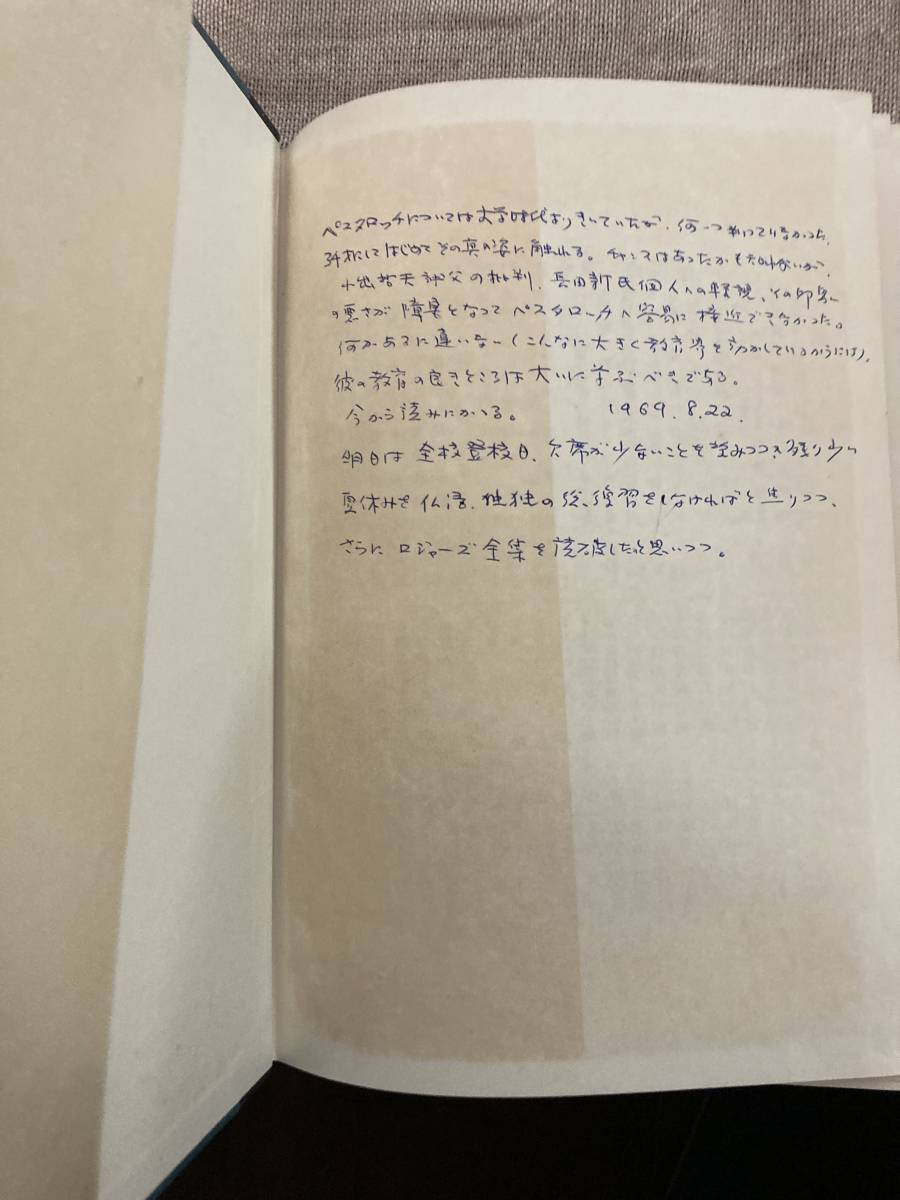 ペスタロッチについては大学時代よりきいていたが、何一つ知っていなかった。
34才にしてはじめてその真の姿に触れる。チャンスはあったかも知れないが、
小出哲夫神父の批判、長田新氏個人への軽視、その印象
の悪さが障害となってペスタロッチへ容易に接近できなかった。
何かあるに違いない(こんなに大きく教育界を動かしているからには)。
彼の教育の良きところは大いに学ぶべきである。
今から読みにかゝる。 1969.8.22.
明日は全校登校日、欠席が少ないことを望みつつ、残り少い
夏休みを仏語、独語の総復習をしなければと思いつつ、
さらにロジャーズ全集を読破したいと思いつつ。